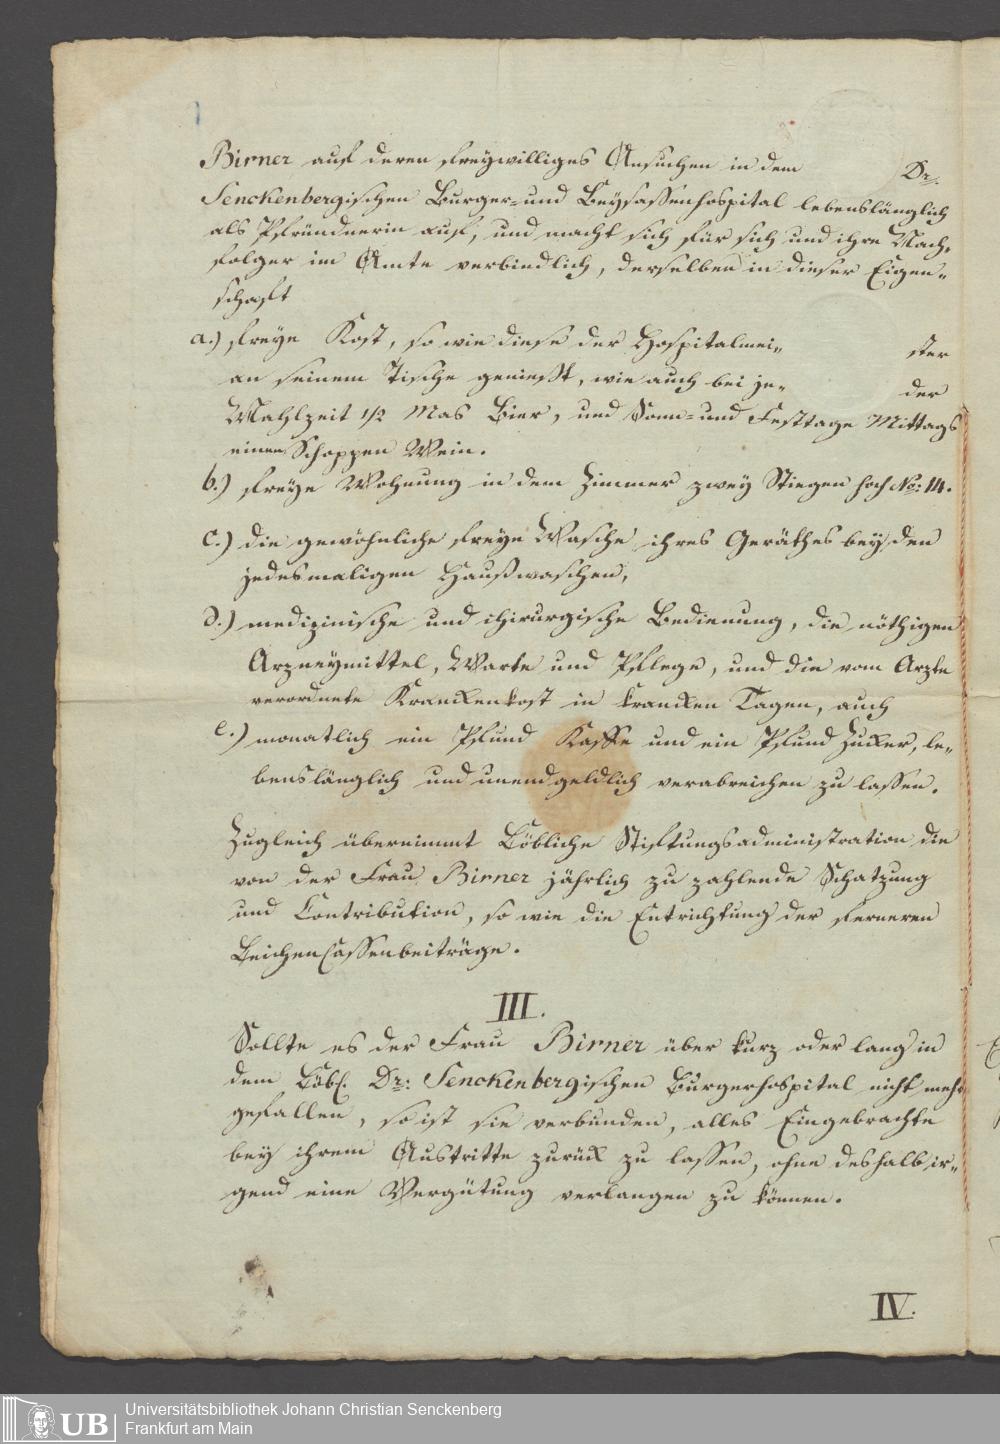 Birner auf deren freywilliges Ansuchen in dem Dr.
Senckenbergischen Burger- und Beysassenhospital lebenslänglich
als Pfründnerin auf, und macht sich für sich und ihre Nach-
folger im Amte verbindlich, derselben in dieser Eigen-
schaft
a.) freye Kost, so wie diese der Hospitalmei- ster
an seinem Tische genießt, wie auch bei je- der
Mahlzeit 1/2 Mas Bier, und Sonn- und Festtage Mittags
einen Schoppen Wein.
b.) freye Wohnung in dem Zimmer zwey Stiegen hoch No: 14.
c.) die gewöhnliche freye Wasche ihres Geräthes bey den
jedesmaligen Haußwaschen,
d.) medizinische und chirurgische Bedienung, die nöthigen
Arzneymittel, Warte und Pflege, und die vom Arzte
verordnete Krankenkost in kranken Tagen, auch
e.) monatlich ein Pfund Kaffe und ein Pfund Zucker, le-
benslänglich und unendgeldlich verabreichen zu lassen.
Zugleich übernimmt Löbliche Stiftungsadministration die
von der Frau Birner jährlich zu zahlende Schatzung
und Contribution, so wie die Entrichtung der ferneren
LeichenCassenbeiträge.
III.
Sollte es der Frau Birner über kurz oder lang in
dem Löbl. Dr: Senckenbergischen Burgerhospital nicht mehr
gefallen, so ist sie verbunden, alles Eingebrachte
bey ihrem Austritte zurück zu lassen, ohne deshalb ir-
gend eine Vergütung verlangen zu können.
IV.
UB
Universitätsbibliothek Johann Christian Senckenberg
Frankfurt am Main